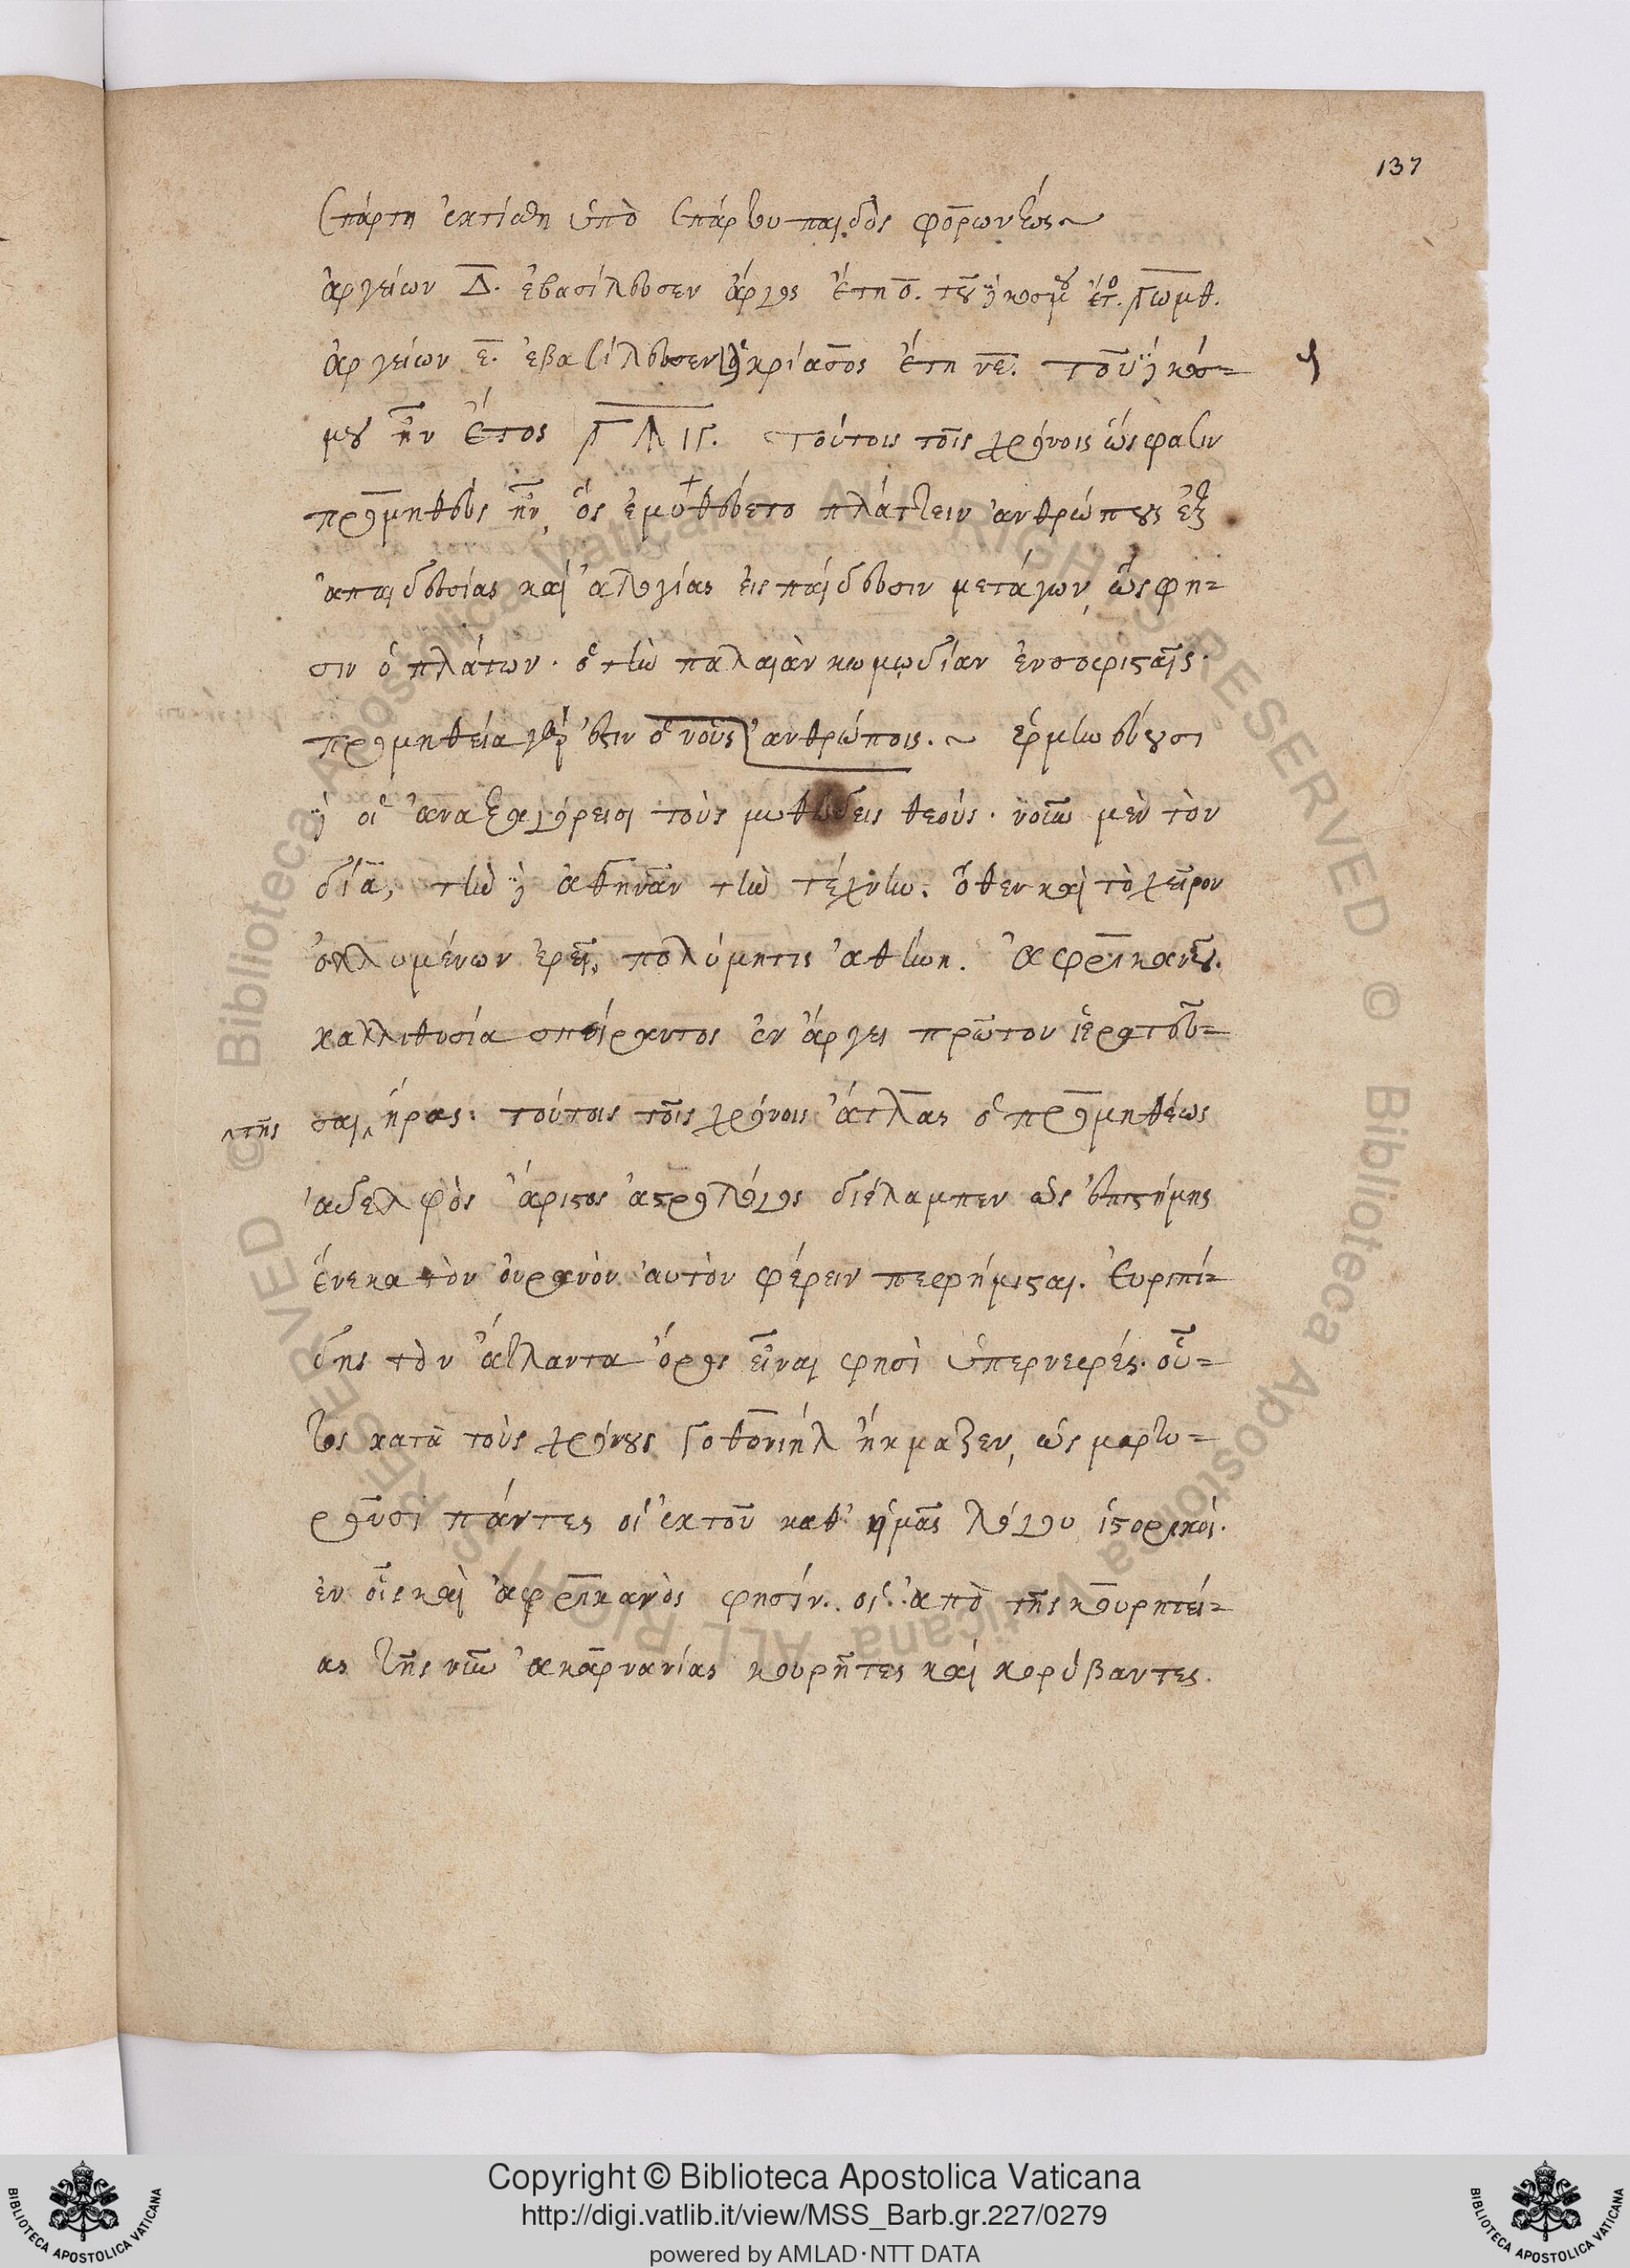 137
Σπάρτη ἐκτίσθη ὑπὸ Σπάρτου παιδὸς φορωνέως ~
ἀργείων Δ. ἐβασίλευσεν ἄργος ἔτη ο. τοῦ δὲ κόσμου ἔτος ͵γωμθ.
ἀργείων ε. ἐβασίλευσεν κρίασος ἔτη νε. τοῦ δὲ κόσ=
μου ἦν ἔτος ͵γϡιγ. τούτοις τοῖς χρόνοις ὥς φασιν
προμηθεὺς ἦν, ὃς ἐμυθεύετο πλάττειν ἀνθρώπους ἐξ
ἀπαιδευσίας καὶ ἀλογίας εἰς παίδευσιν μετάγων, ὥς φη=
σιν ὁ πλάτων. ὁ τὴν παλαιὰν κωμωδίαν ἐν σοφισταῖς.
προμηθεία γάρ ἐστιν ὁ νοῦς ἀνθρώποις. ~ ἑρμηνεύουσι
δὲ οἱ ἀναξαγόρειοι τοὺς μυθώδεις θεούς. νοῦν μὲν τὸν
δία, τὴν δὲ ἀθηνᾶν τὴν τέχνην. ὅθεν καὶ τὸ χεῖρον
ὀλλυμένων ἐρεῖ, πολύμητις ἀθήνη. ἀφρικανοῦ.
καλλιθυσία σπείραντος ἐν ἄργει πρῶτον ἱερατεύ=
^τῆς σαι ^ ἥρας. τούτοις τοῖς χρόνοις ἄτλας ὁ προμηθέως
ἀδελφὸς ἄριστος ἀστρολόγος διέλαμπεν ὡς ἐπιστήμης
ἕνεκα τὸν οὐρανὸν αὐτὸν φέρειν πεφήμισται. Εὐριπί=
δης τὸν ἄτλαντα ὄρος εἶναι φησὶ ὑπερνεφές. οὗ=
τος κατὰ τοὺς χρόνους γοθονιὴλ ἤκμαζεν, ὡς μαρτυ=
ροῦσι πάντες οἱ ἐκ τοῦ καθ' ἡμᾶς λόγου ἱστορικοί.
ἐν οἷς καὶ ἀφρικανὸς φησίν. οἱ ἀπὸ τῆς κουρητεί=
ας τῆς νῦν ἀκαρνανίας κουρῆτες καὶ κορύβαντες.
Copyright © Biblioteca Apostolica Vaticana
http://digi.vatlib.it/view/MSS_Barb.gr.227/0279
powered by AMLAD·NTT DATA
BIBLIOTECA APOSTOLICA VATICANA
BIBLIOTECA APOSTOLICA VATICANA
© Biblioteca Apostolica Vaticana ALL RIGHTS RESERVED © Biblioteca Apostolica Vaticana ALL RIGHTS RESERVED